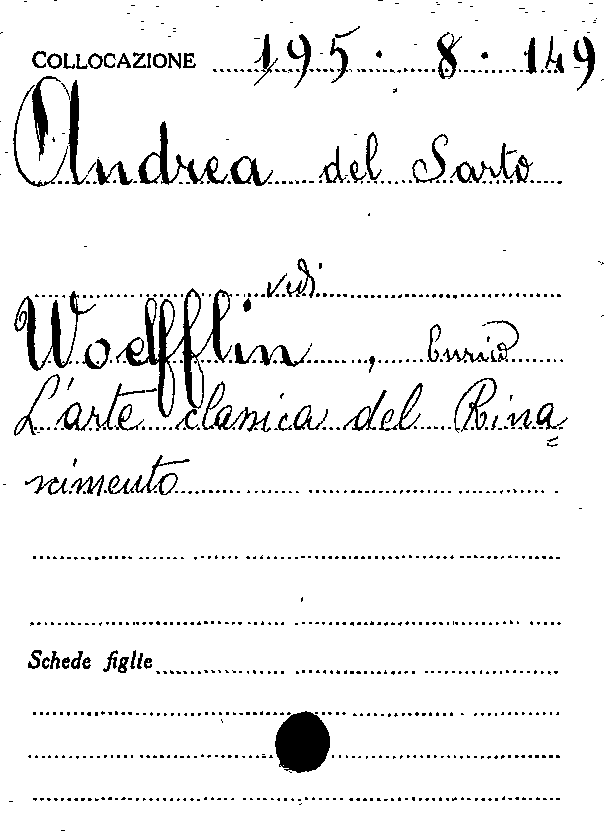 COLLOCAZIONE 195. 8. 149
Andrea del Sarto
vedi
Woelfflin, Enrico
L'arte classica del Rina=
scimento
Schede figlie